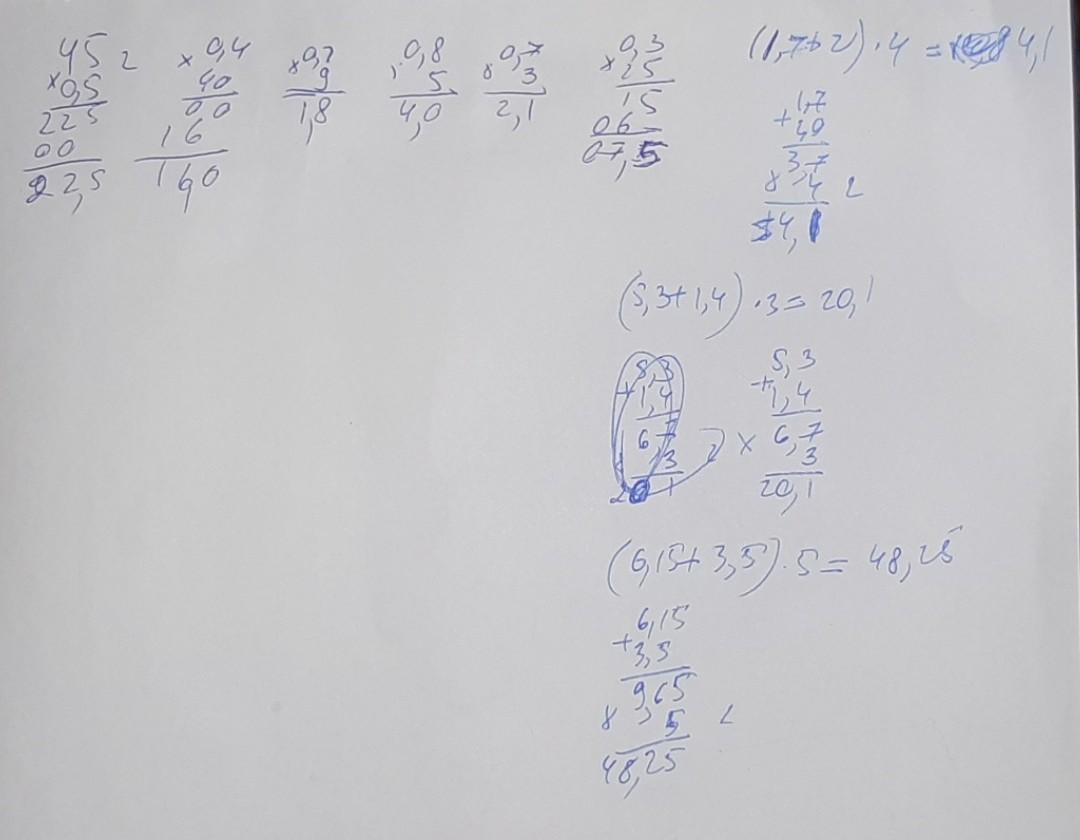 45 2
×0,5
225
00
22,5
×0,4
40
00
16
16,0
×0,2
9
1,8
0,8
5
4,0
×0,7
3
2,1
×0,3
25
15
06
07,5
(1,7+2)·4= 84,1
+1,7
20
3,7
×4 2
14,1
(5,3+1,4)·3=20,1
5,3
+1,4
6,7
3
20 1
5,3
+1,4
× 6,7
3
20,1
(6,15+3,5)·5=48,25
6,15
+3,5
9,65
× 5
48,25